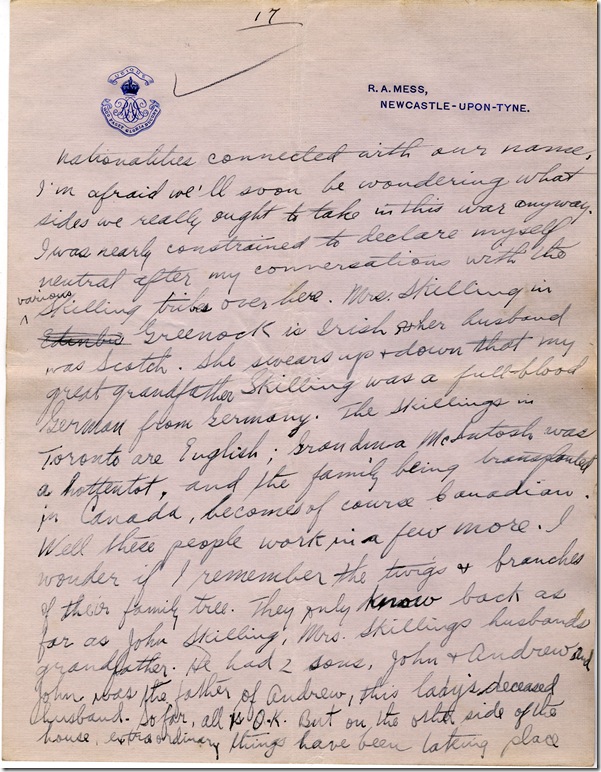 17
UBIQUE
QUO FAS ET GLORIA DUCUNT
R. A. MESS,
NEWCASTLE-UPON-TYNE.
nationalities connected with our name,
I'm afraid we'll soon be wondering what
sides we really ought to take in this war anyway.
I was nearly constrained to declare myself
neutral after my conversations with the
various
Skilling tribes over here. Mrs. Skilling in
Greenock is Irish & her husband
was Scotch. She swears up & down that my
great grandfather Skilling was a full-blood
German from Germany. The Skillings in
Toronto are English; Grandma McIntosh was
a hottentot, and the family being transplanted
in Canada, becomes of course Canadian.
Well these people work in a few more. I
wonder if I remember the twigs & branches
of their family tree. They only know back as
far as John Skilling, Mrs. Skillings husbands
grandfather. He had 2 sons, John & Andrew and
John was the father of Andrew, this lady's deceased
husband. So far, all is O.K. But on the other side of the
house, extraordinary things have been taking place